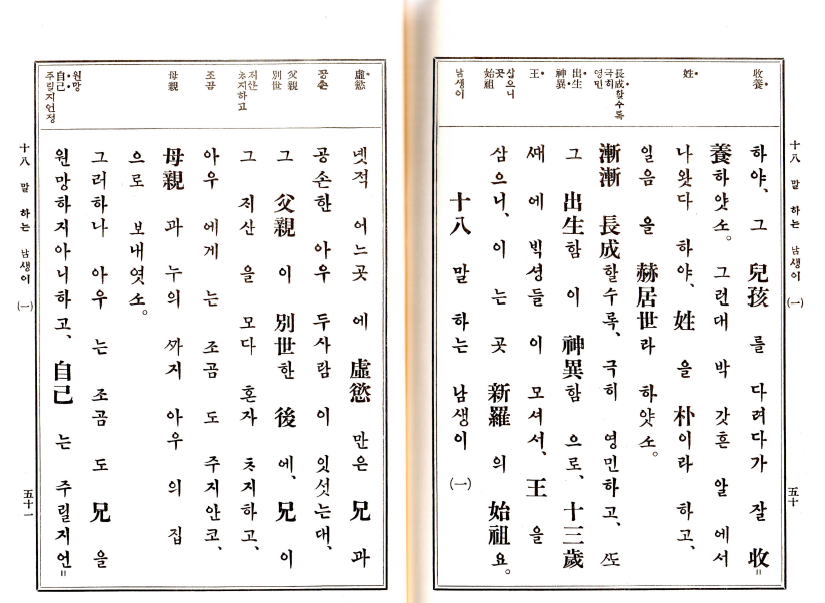 十八 말 하는 남생이 (一)
五十
收養
姓
長成할수록
극히
영민
出生
神異
王
삼으니
곳
始祖
남생이
하야、 그 兒孩 를 다려다가 잘 收=
養하얏소。 그런대 박 갓흔 알 에서
나왓다 하야、 姓 을 朴이라 하고、
일음 을 赫居世라 하얏소。
漸漸 長成할수록、 극히 영민하고、 ᄯᅩ
그 出生함 이 神異함 으로、 十三歲
ᄯᅢ 에 빅셩들 이 모셔서、 王 을
삼으니、 이 는 곳 新羅 의 始祖요。
十八 말 하는 남생이 (一)
虛慾
공손
父親
別世
저산
ᄎᆞ지하고
조곰
母親
원망
自己
주릴지언정
넷적 어느곳 에 虛慾 만은 兄 과
공손한 아우 두사람 이 잇섯는대、
그 父親 이 別世한 後 에、 兄 이
그 저산 을 모다 혼자 ᄎᆞ지하고、
아우 에게 는 조곰 도 주지안코、
母親 과 누의 ᄭᅡ지 아우 의 집
으로 보내엿소。
그러하나 아우 는 조곰 도 兄 을
원망하지아니하고、 自己 는 주릴지언=
十八 말 하는 남생이 (一)
五十一